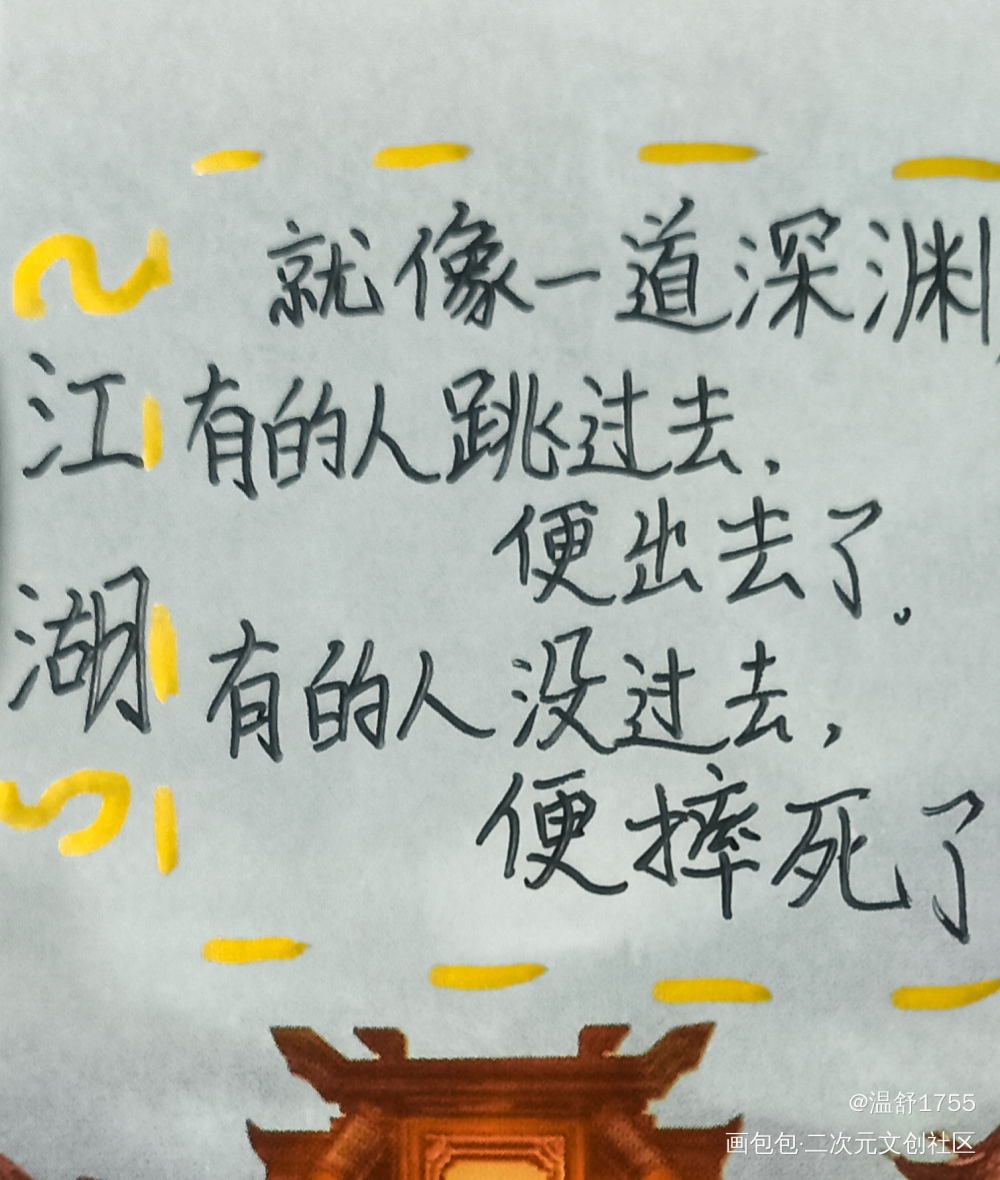 江湖
就像一道深渊,
有的人跳过去,
便出去了。
有的人没过去,
便摔死了
@温舒1755
画包包·二次元文创社区